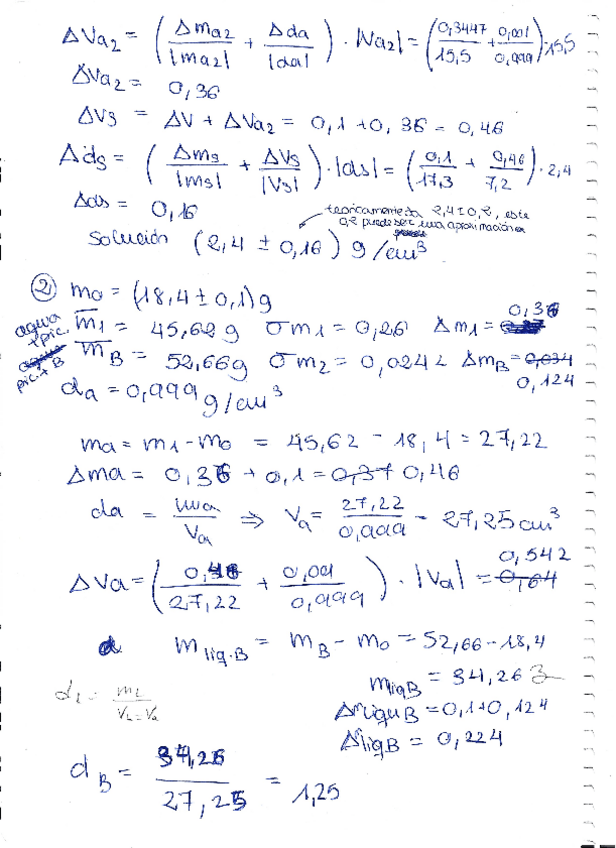 ΔVa2 = (Δma2/|ma2| + Δda/|da|) · |Va2| = (0,3447/15,5 + 0,001/0,999) · 15,5
ΔVa2 = 0,36
ΔVs = ΔV + ΔVa2 = 0,1 + 0,36 = 0,46
Δds = (Δms/|ms| + ΔVs/|Vs|) · |ds| = (0,1/17,3 + 0,46/7,2) · 2,4
Δds = 0,16
teoricamente da 2,4±0,2, este
0,2 puede ser una aproximación
solución (2,4 ± 0,16) g/cm³
② m0 = (18,4 ± 0,1) g
agua + pic. m1 = 45,62 g σm1 = 0,26 Δm1 = 0,36
pic. + B mB = 52,66 g σm2 = 0,0242 ΔmB = 0,034 0,124
da = 0,999 g/cm³
ma = m1 - m0 = 45,62 - 18,4 = 27,22
Δma = 0,36 + 0,1 = 0,37 0,46
da = ma/Va ⇒ Va = 27,22/0,999 = 27,25 cm³
ΔVa = (0,46/27,22 + 0,001/0,999) · |Va| = 0,64 0,542
m liq.B = mB - m0 = 52,66 - 18,4
mliqB = 34,26
ΔliquB = 0,1 + 0,124
ΔliqB = 0,224
dL = mL/VL=Va
dB = 34,26/27,25 = 1,25